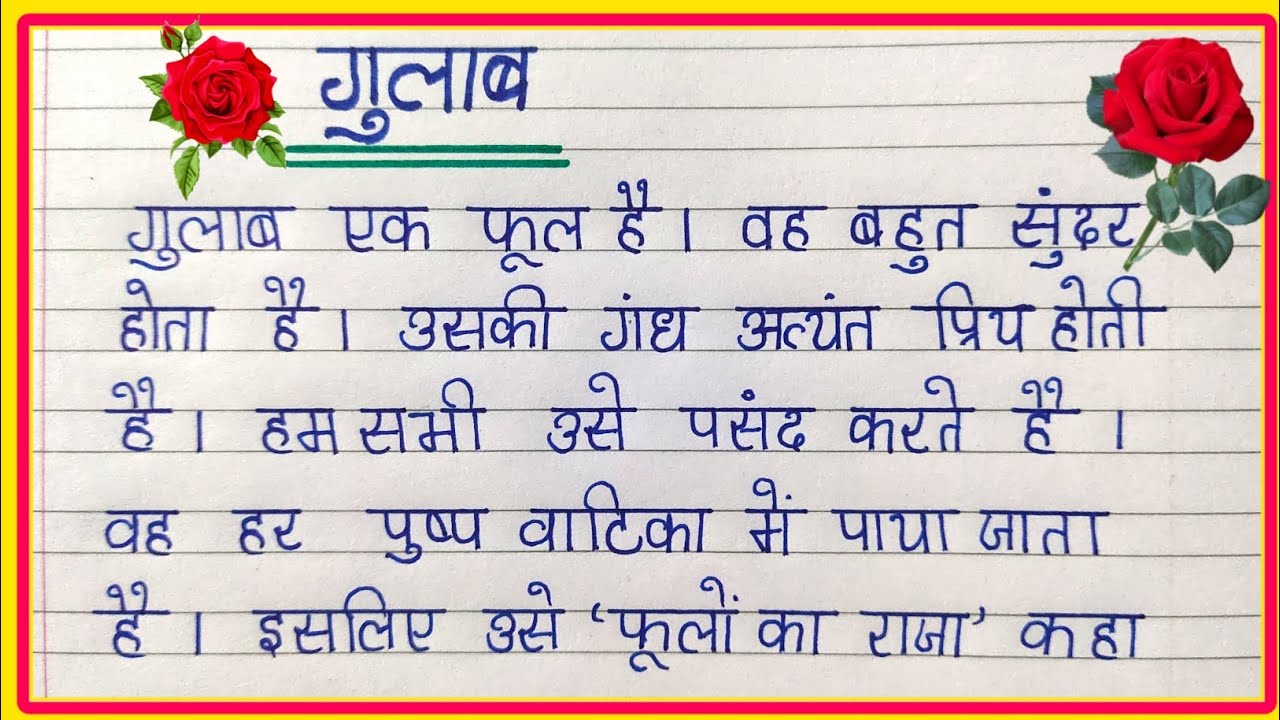 गुलाब
गुलाब एक फूल है। वह बहुत सुंदर
होता है। उसकी गंध अत्यंत प्रिय होती
है। हम सभी उसे पसंद करते है।
वह हर पुष्प वाटिका में पाया जाता
है। इसलिए उसे ‘फूलों का राजा’ कहा